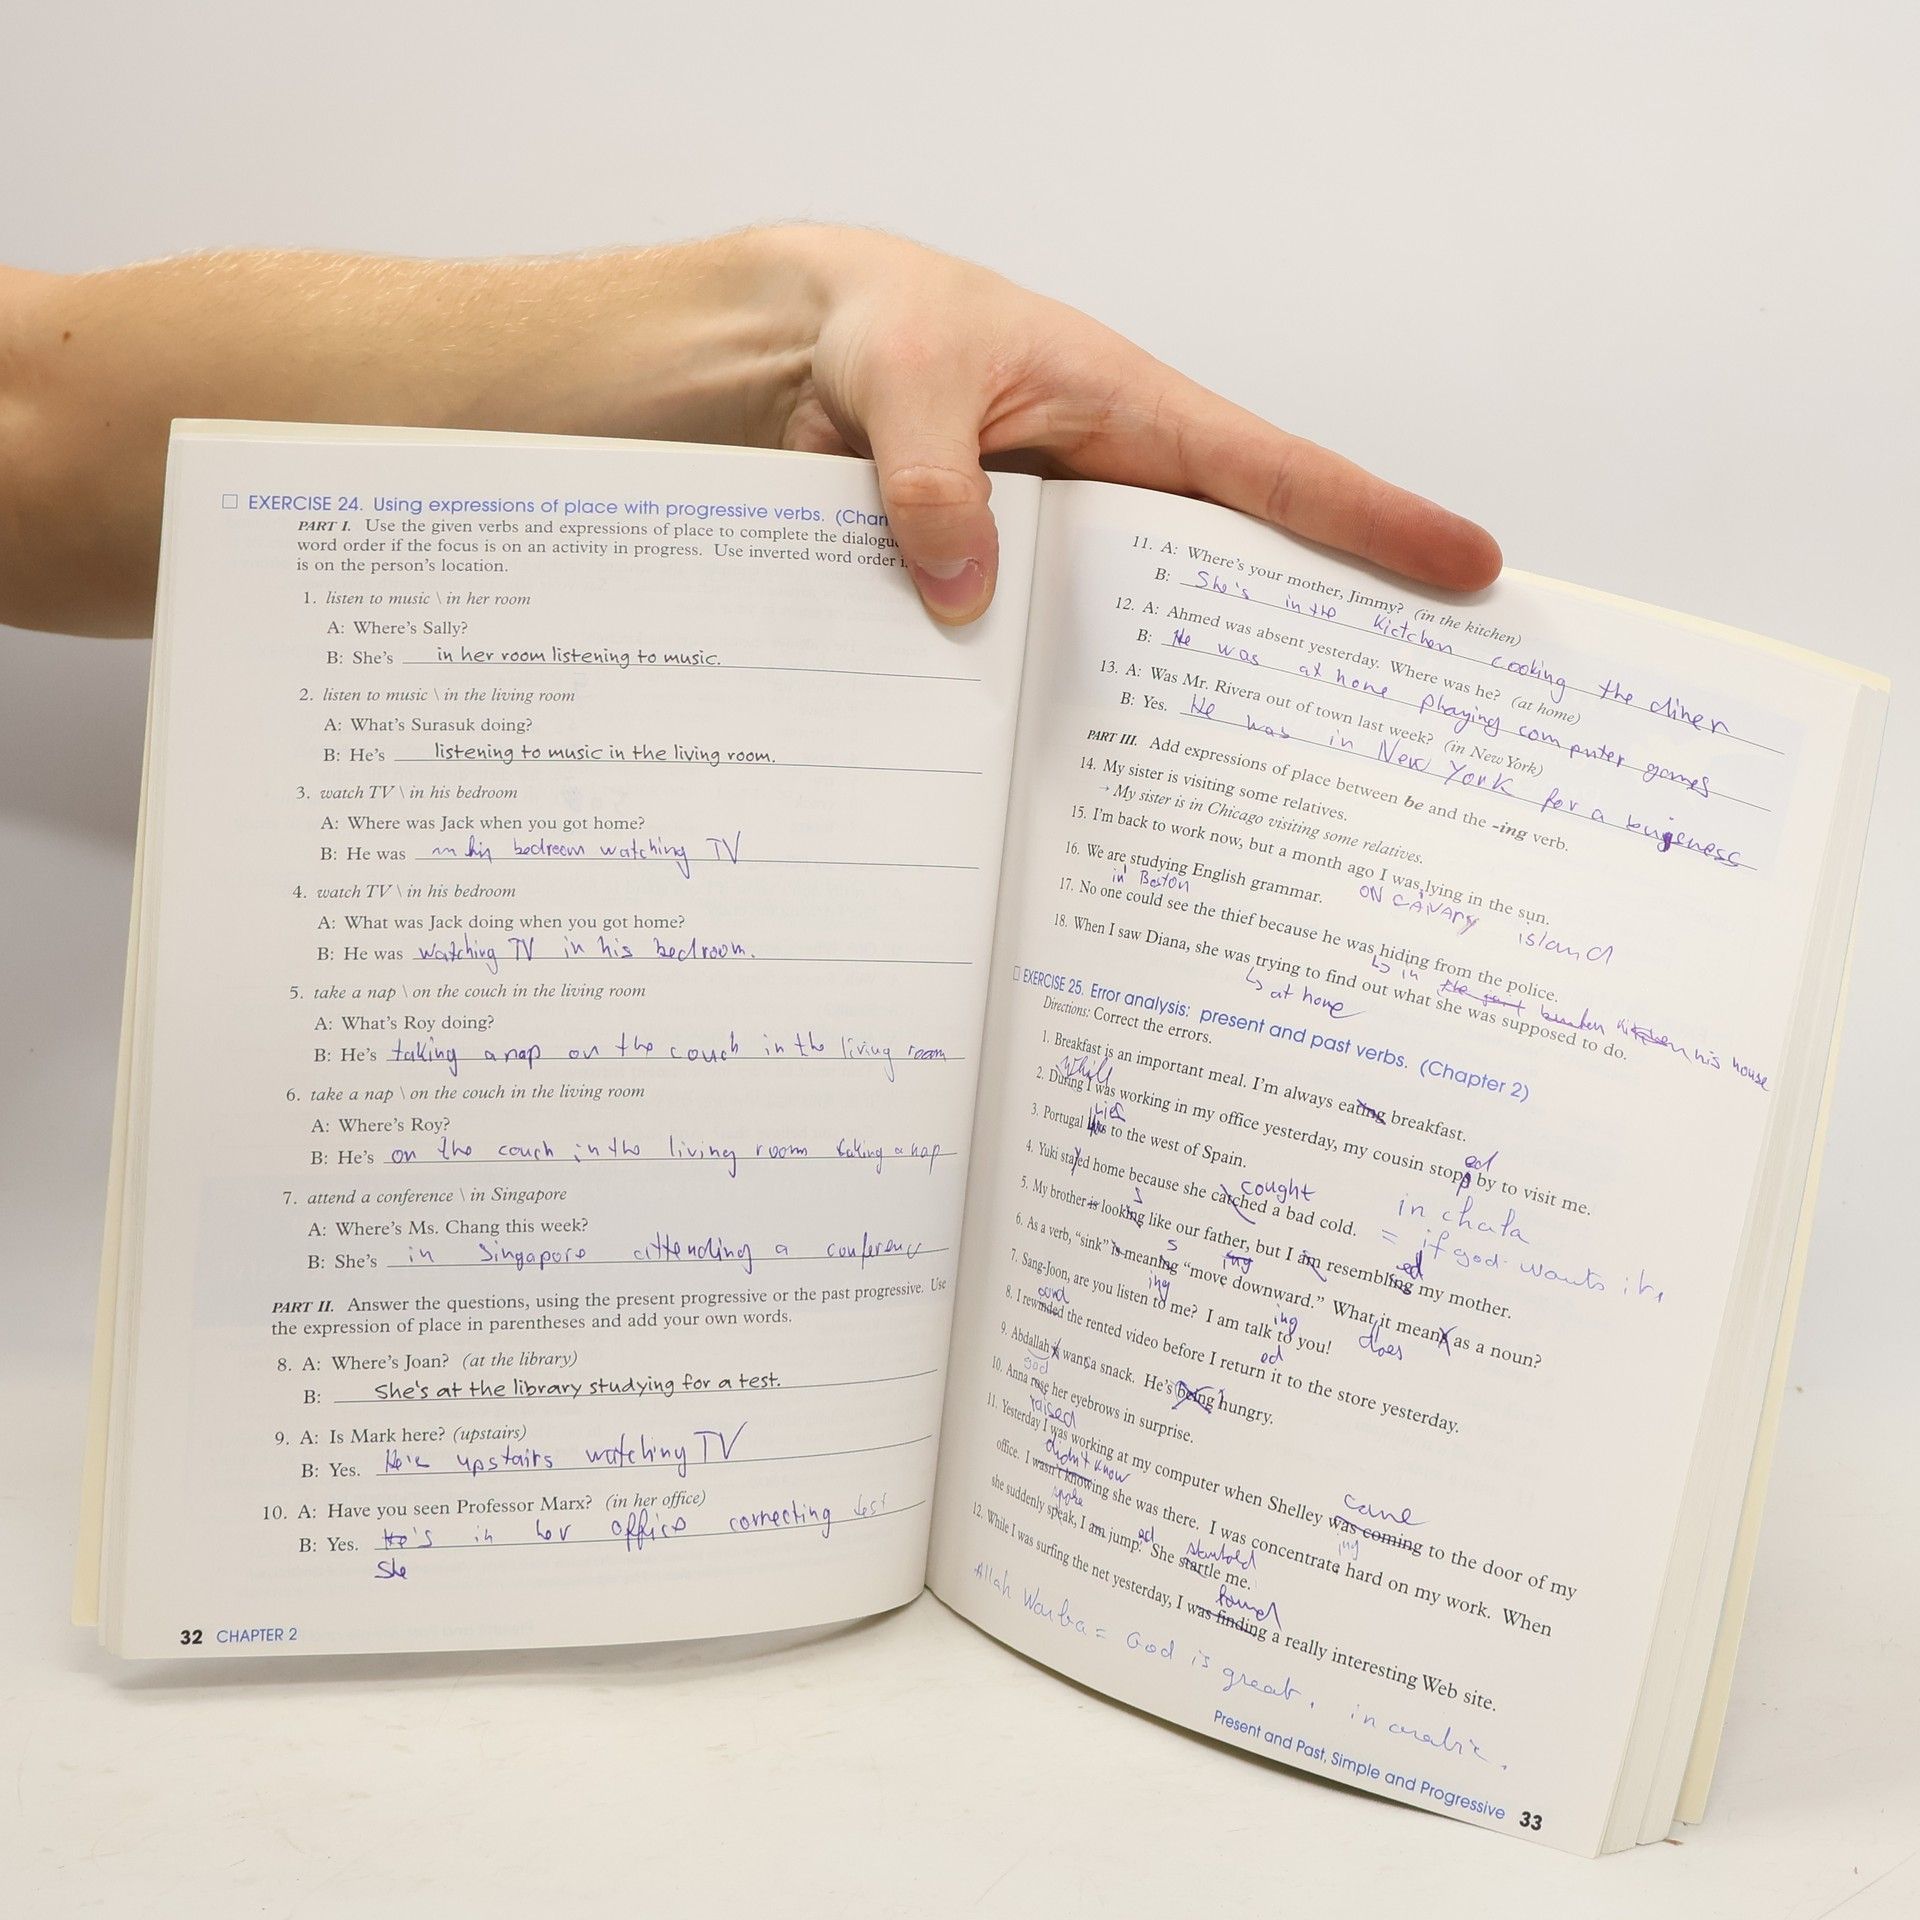 EXERCISE 24. Using expressions of place with progressive verbs. (Char
PART I. Use the given verbs and expressions of place to complete the dialogu
word order if the focus is on an activity in progress. Use inverted word order i
is on the person's location.
1. listen to music \ in her room
A: Where's Sally?
B: She's in her room listening to music.
2. listen to music \ in the living room
A: What's Surasuk doing?
B: He's listening to music in the living room.
3. watch TV \ in his bedroom
A: Where was Jack when you got home?
B: He was in his bedroom watching TV
4. watch TV \ in his bedroom
A: What was Jack doing when you got home?
B: He was watching TV in his bedroom.
5. take a nap \ on the couch in the living room
A: What's Roy doing?
B: He's taking a nap on the couch in the living room
6. take a nap \ on the couch in the living room
A: Where's Roy?
B: He's on the couch in the living room taking a nap
7. attend a conference \ in Singapore
A: Where's Ms. Chang this week?
B: She's in Singapore attending a conference
PART II. Answer the questions, using the present progressive or the past progressive. Use
the expression of place in parentheses and add your own words.
8. A: Where's Joan? (at the library)
B: She's at the library studying for a test.
9. A: Is Mark here? (upstairs)
B: Yes. He's upstairs watching TV
10. A: Have you seen Professor Marx? (in her office)
B: Yes. He's in her office correcting test
She
32 CHAPTER 2
11. A: Where's your mother, Jimmy? (in the kitchen)
B: She's in the kictchen cooking the diner
12. A: Ahmed was absent yesterday. Where was he? (at home)
B: He was at home playing computer games
13. A: Was Mr. Rivera out of town last week? (in New York)
B: Yes. He was in New York for a
PART III. Add expressions of place between be and the -ing verb.
14. My sister is visiting some relatives.
→ My sister is in Chicago visiting some relatives.
15. I'm back to work now, but a month ago I was lying in the sun.
ON CAIVARY island
16. We are studying English grammar.
in Boston
17. No one could see the thief because he was hiding from the police.
↳ in his house
18. When I saw Diana, she was trying to find out what she was supposed to do.
↳ at home
EXERCISE 25. Error analysis: present and past verbs. (Chapter 2)
Directions: Correct the errors.
1. Breakfast is an important meal. I'm always eating breakfast.
While
2. During I was working in my office yesterday, my cousin stopp by to visit me.
ed
lies
3. Portugal to the west of Spain.
4. Yuki stayed home because she catched a bad cold.
cought
in chala
= if god wants it,
5. My brother is looking like our father, but I am resembling my mother.
s
6. As a verb, "sink" is meaning "move downward." What it means as a noun?
s
does
7. Sang-Joon, are you listen to me? I am talk to you!
ing
ing
8. I rewinded the rented video before I return it to the store yesterday.
ound
ed
9. Abdallah is want a snack. He's being hungry.
god
10. Anna rose her eyebrows in surprise.
raised
11. Yesterday I was working at my computer when Shelley was coming to the door of my
came
office. I wasn't knowing she was there. I was concentrate hard on my work. When
didn't know
ing
she suddenly speak, I am jump. She startle me.
spoke
ed
12. While I was surfing the net yesterday, I was finding a really interesting Web site.
found
Allah Warba = God is great, in arabic.
Present and Past, Simple and Progressive 33